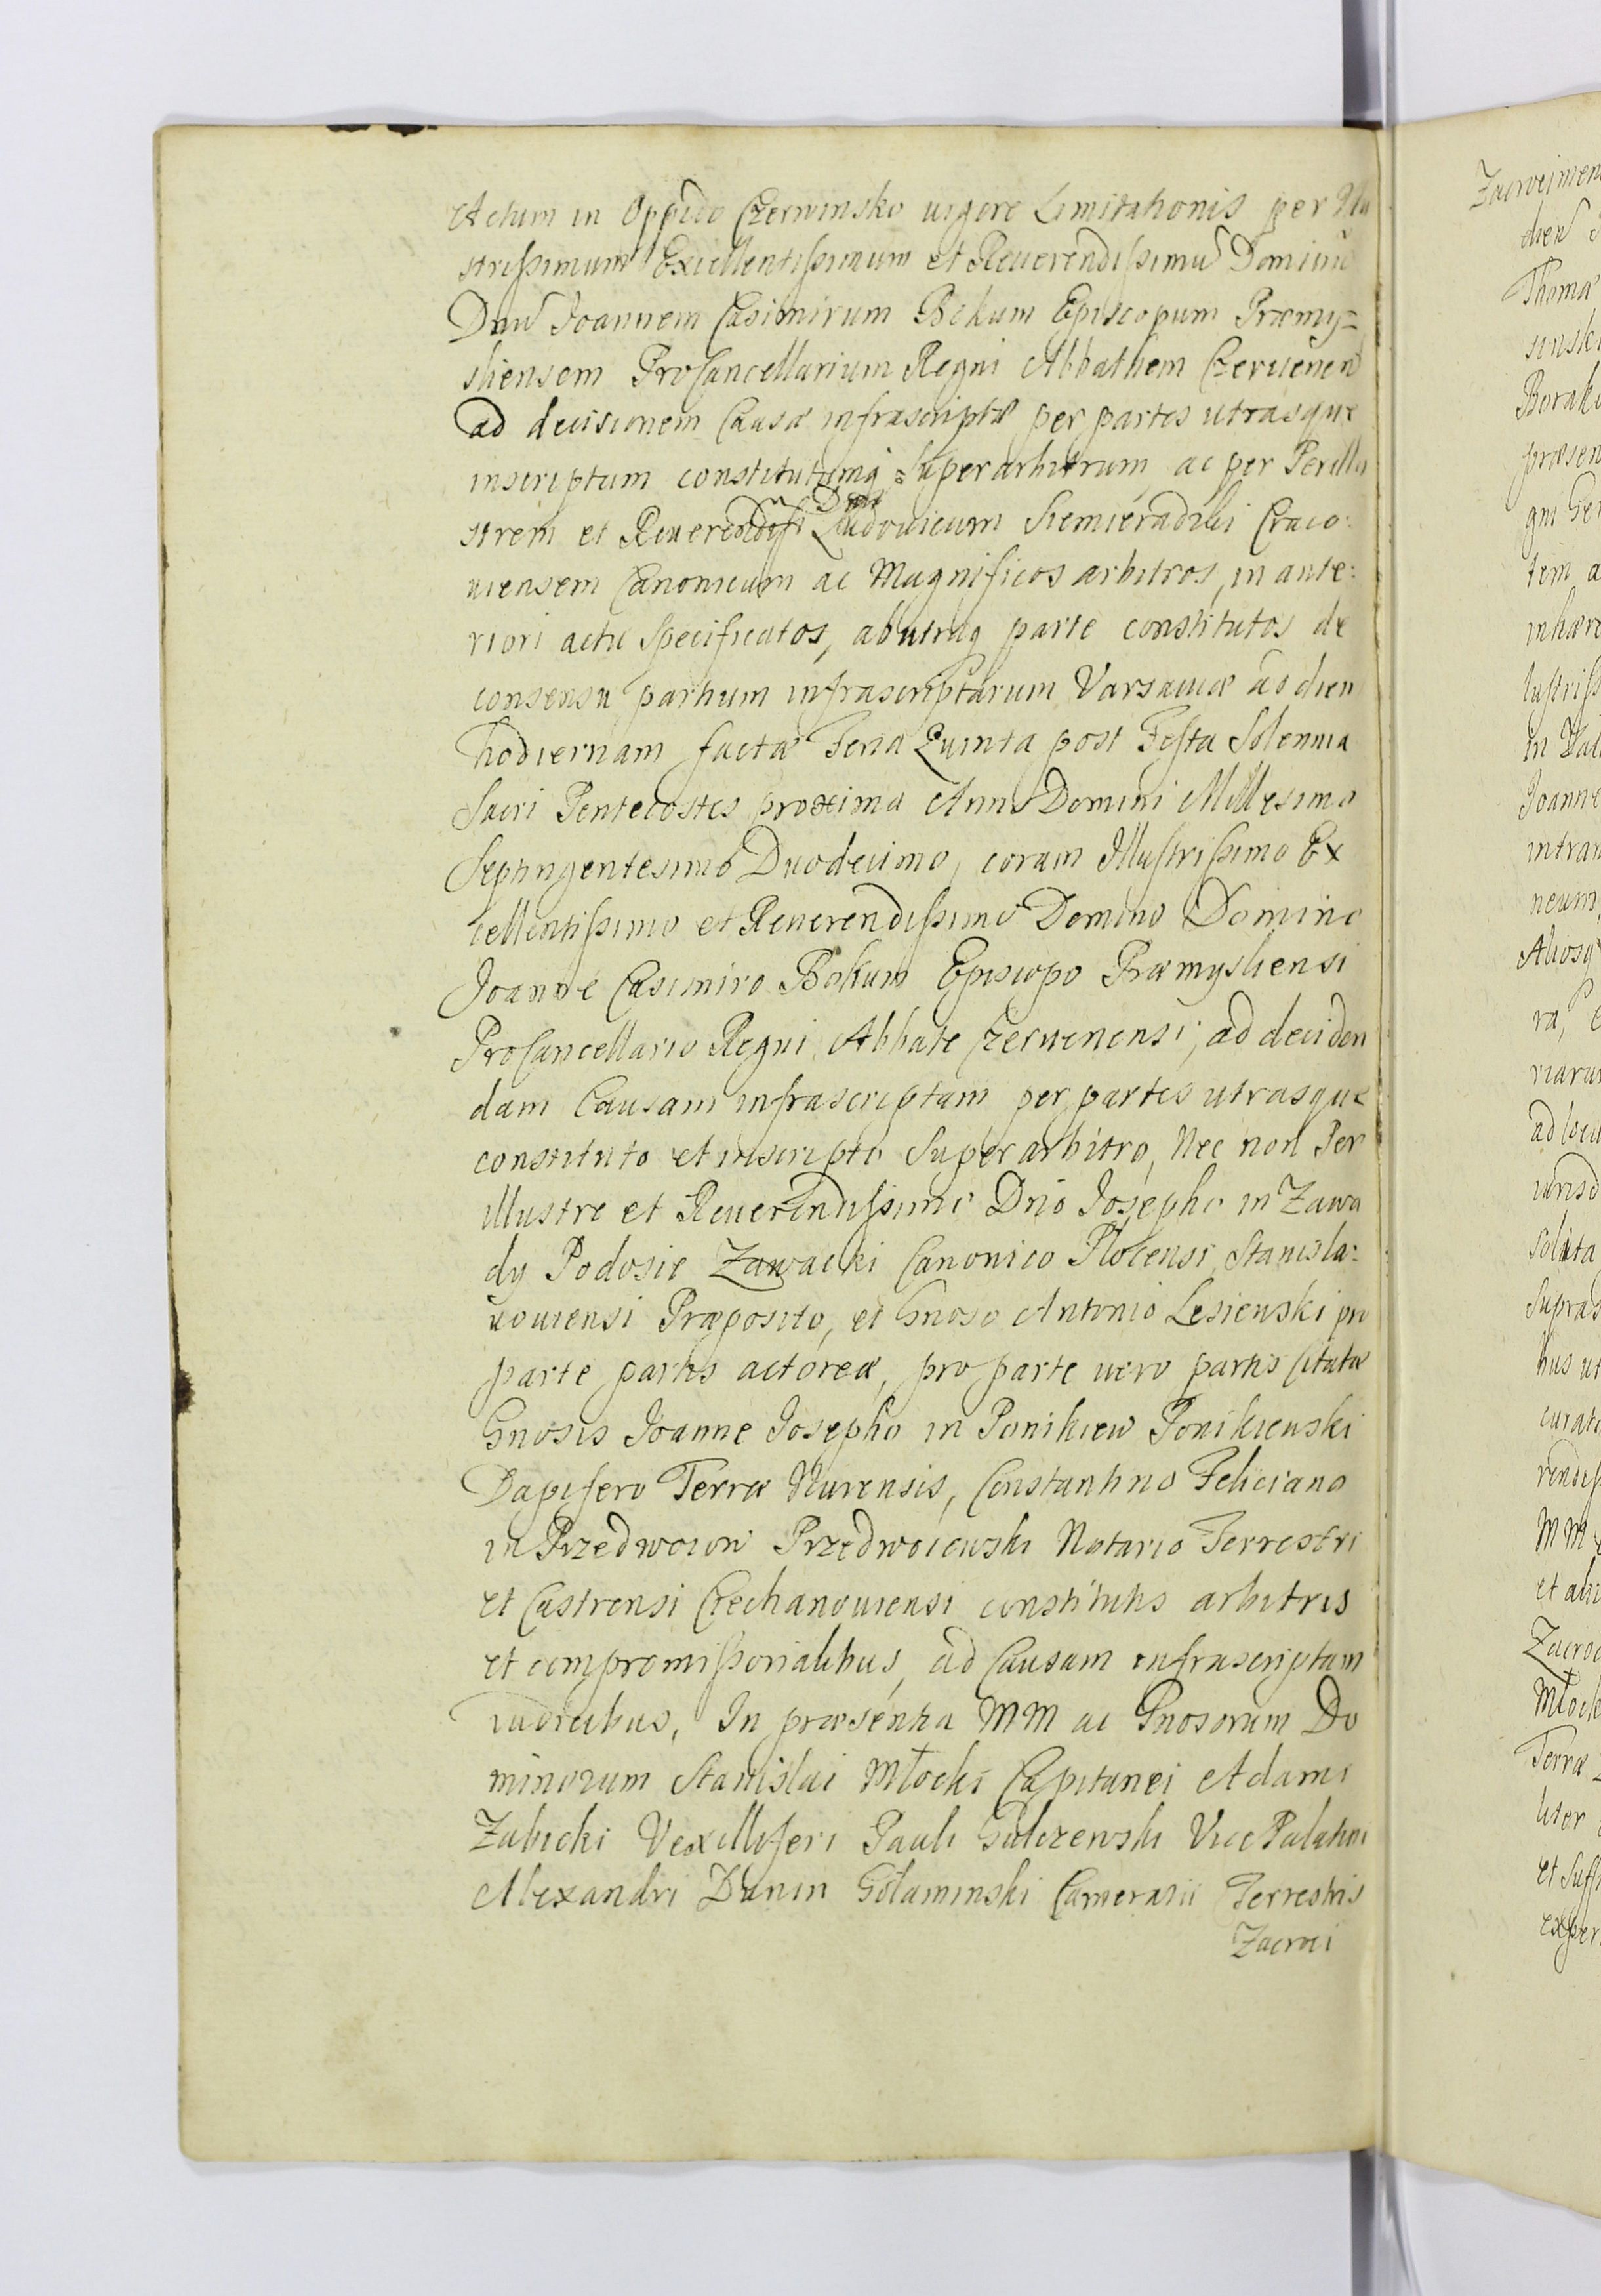 Actum in Oppido Czerwinsko uigore Limitationis per Illu
strissimum Excellentissimum et Reuerendissimũ Dominũ
Dnũ Joannem Casimirum Bokum Episcopum Præmy=
sliensem ProCancellarium Regni Abbathem Czeruenen
ad decisionem Causæ infrascriptæ per partes utrasque
inscriptum constitutumq̃ Superarbitrum, ac per Perillu
strem et Ludouicum Siemieradzki Craco:
uiensem Canonicum ac Magnificos arbitros, in ante:
riori actu specificatos, ab utraq parte constitutos de
consensu partium infrascriptarum Varsauiæ ad diem
hodiernam factæ Feria Quinta post Festa Solennia
Sacri Pentecostes proxima Anno Domini Millesimo
Septingentesimo Duodecimo, coram Illustrissimo Ex
cellentissimo et Reuerendissimo Domino Domino
Joanne Casimiro Bokum Episcopo Præmysliensi
ProCancellario Regni Abbate Czeruenensi, ad deciden
dam Causam infrascriptam per partes utrasque
constituto et inscripto Superarbitro, Nec non Per
illustre et Reuerendissimo Dño Josepho in Zawa
dy Podosie Zawacki Canonico Plocensi, Stanisla:
uouiensi Præposito, et Gnoso Antonio Lesienski pro
parte partis actoreæ, pro parte uero partis citatæ
Gnosis Joanne Josepho in Ponikiew Ponikieuski
Dapifero Terræ Nurensis, Constantino Feliciano
in Przedwoiow Przedwoieuski Notario Terrestri
et Castrensi Czechanouiensi constitutis arbitris
et compromissorialibus, ad Causam infrascriptam
iudicibus, In præsentia MM ac Gnosorum Do
minorum Stanislai Młocki Capitanei Adami
Zabicki Vexilliferi Pauli Gulczewski Vice Palatini
Alexandri Dunin Golaminski Camerarii Terrestris
Zacroci